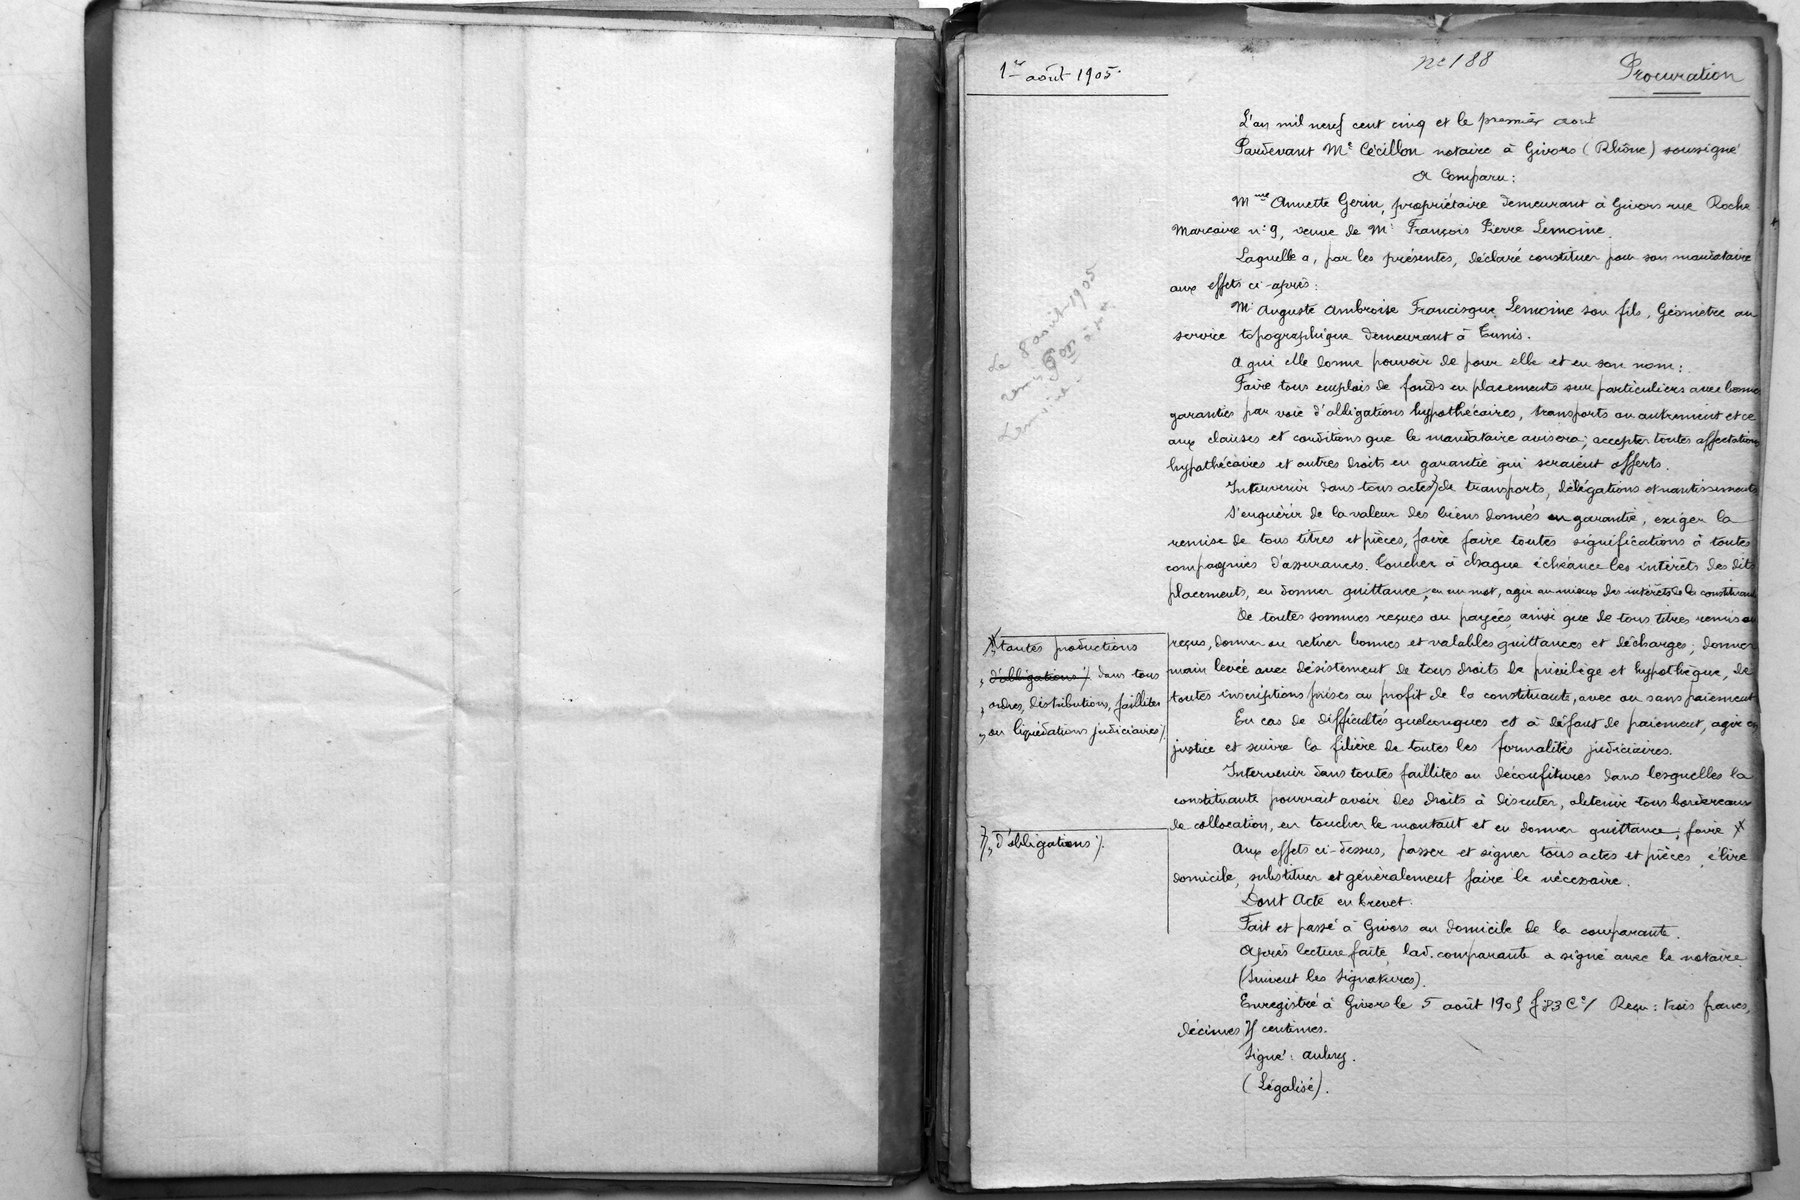 1er août 1905.
No 188
Procuration
L'an mil neuf cent cinq et le premier août
Pardevant Me Cécillon notaire à Givors (Rhône) soussigné
a Comparu:
Mme Annette Gerin, propriétaire demeurant à Givors rue Roche
Marcaire no 9, veuve de Mr François Pierre Lemoine.
Laquelle a, par les présentes, déclaré constituer pour son mandataire
aux effets ci-après:
Mr Auguste Ambroise Francisque Lemoine son fils, Géomètre au
service topographique demeurant à Tunis.
A qui elle donne pouvoir de pour elle et en son nom:
Faire tous emplois de fonds en placements sur particuliers avec bonnes
garanties par voie d'obligations hypothécaires, transports ou autrement et ce
aux clauses et conditions que le mandataire avisera; accepter toutes affectations
hypothécaires et autres droits en garantie qui seraient offerts.
Intervenir dans tous actes de transports, délégations et nantissements
S'enquérir de la valeur des biens donnés en garantie, exiger la
remise de tous titres et pièces, faire faire toutes significations à toutes
compagnies d'assurances. Toucher à chaque échéance les intérêts des dits
placements, en donner quittance, en un mot, agir au mieux des intérêts de la constituante
De toutes sommes reçues ou payées, ainsi que de tous titres remis ou
reçus, donner ou retirer bonnes et valables quittances et décharges; donner
main levée avec désistement de tous droits de privilège et hypothèque, de
toutes inscriptions prises au profit de la constituante, avec ou sans paiement
En cas de difficultés quelconques et à défaut de paiement, agir en
justice et suivre la filière de toutes les formalités judiciaires.
Intervenir dans toutes faillites ou déconfitures dans lesquelles la
constituante pourrait avoir des droits à discuter, obtenir tous bordereaux
de collocation, en toucher le montant et en donner quittance, faire X
Aux effets ci-dessus, passer et signer tous actes et pièces, élire
domicile, substituer et généralement faire le nécessaire.
Dont Acte en brevet.
Fait et passé à Givors au domicile de la comparante.
Après lecture faite, lad. comparante a signé avec le notaire
(Suivent les Signatures).
Enregistré à Givors le 5 août 1905 f 83 Ce / Reçu: trois francs,
décimes 75 centimes.
Signé: Aubry.
(Légalisé).
Le 8 août 1905
remis
Lemoine
X, toutes productions
„ d'obligations / dans tous
„ ordres, distributions, faillites
„ ou liquidations judiciaires /.
„ d'obligations /.